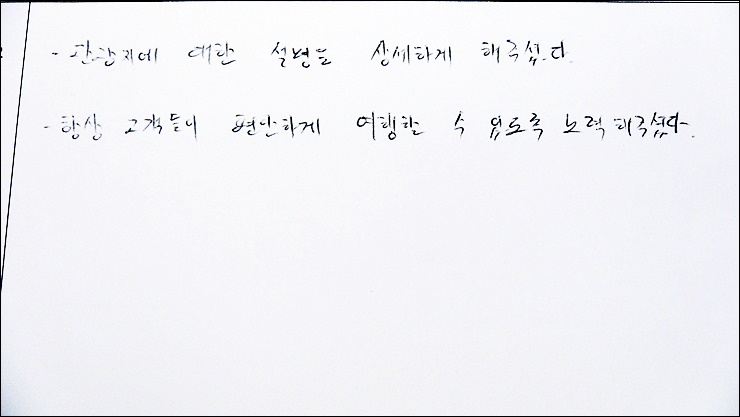 - 관광지에 대한 설명도 상세하게 해주셨다.
- 항상 고객들이 편안하게 여행할 수 있도록 노력해주셨다.